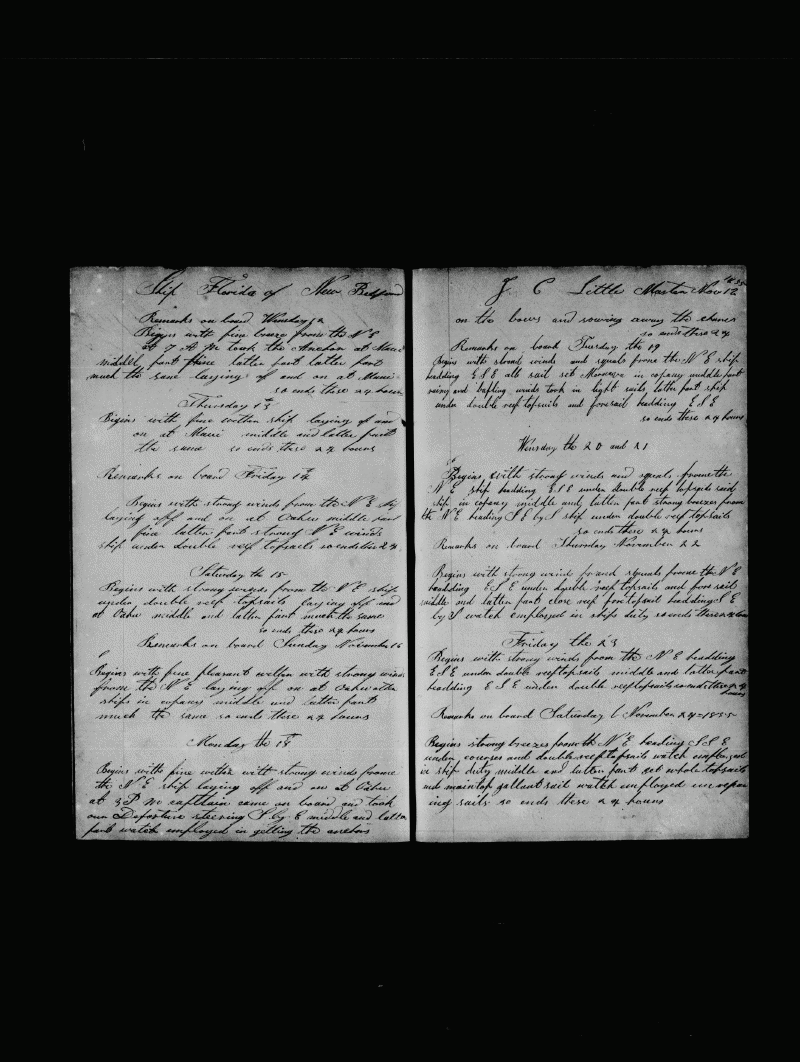 Ship Florida of New Bedford
Remarks on board Wensday 12
Begins with fine breeze from the N E
at 7 A M took the Anchor at Maui
middle part fine latter part latter part
much the same laying of and on at Maui
so ends these 24 hours
Thursday 13
Begins with fine wethen ship laying of and
on at Maui middle and latter part
the same so ends these 24 hours
Remarks on board Friday 14
Begins with strong winds from the N E ship
laying off and on at Oahu middle part
fine latter part strong N E winds
ship under double reef topsails so ends the 24
Saturday the 15
Begins with strong winds from the N E ship
under double reef topsails laying off and
at Oahu middle and latter part much the same
so ends these 24 hours
Remarks on board Sunday November 16
Begins with fine pleasant wethen with strong winds
from the N E laying off on at Oahu other
ships in company middle and latter part
much the same so ends these 24 hours
Monday the 18
Begins with fine wethen with strong winds frome
the N E ship laying off and on at Oahu
at 3 P M capthain came on board and took
our Departure steering S by E middle and latter
part watch employed in getting the anchors
J C Little Master Nov 12
on the bows and sowing away the chanes
so ends these 24
Remarks on board Tuesday the 19
Begins with strong winds and squals frome the N E ship
headding E S E all sail set in copany middle part
and bafling winds took in light sails latter part ship
under double reef topsails and foresail headding E S E
so ends these 24 hours
Wensday the 20 and 21
Begins with strong winds and squals frome the
N E ship headding E S E under double reef topsails said
ship in copany middle and latter part strong breezes from
the N E heading S E by S ship under double reef topsails
so ends these 24 hours
Remarks on board Thursday November 22
Begins with strong wind and squals from the N E
headding E S E under double reef topsails and fore sail
middle and latter part close reef fore topsail headding S E
by S watch employed in ships duty so ends these 24 hours
Friday the 23
Begins with strong winds from the N E headding
E S E under double reef topsails middle and latter part
headding E S E under double reef topsails so ends these 24
hours
Remarks on board Saturday November 24 1855
Begins strong breezes from the N E heading S S E
under courses and double reef topsails watch employed
in ship duty middle and latter part set whole topsails
and maintop gallant sail watch employed in repair
ing sails so ends these 24 hours